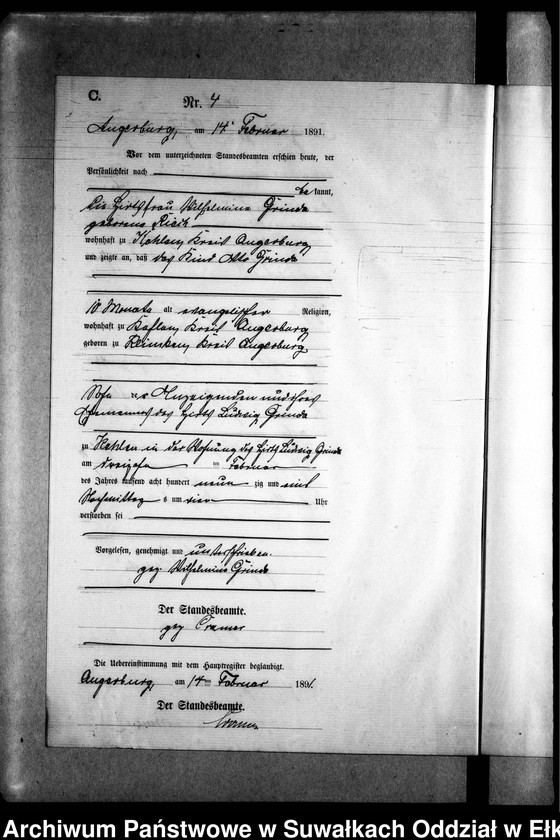 C.
Nr. 4
Angerburg, am 14. Februar 1891.
Vor dem unterzeichneten Standesbeamten erschien heute, der
Persönlichkeit nach
bekannt,
die Hirtsfrau Wilhelmine Grinda
geborene
wohnhaft zu Kehlen Kreis Angerburg
und zeigte an, daß das Kind Otto Grinda
10 Monate alt evangelischer Religion,
wohnhaft zu Kehlen Kreis Angerburg
geboren zu Kreis Angerburg,
Sohn der Anzeigenden und ihres
Ehemannes des Hirts Ludwig Grinda
zu Kehlen in der Wohnung des Hirts Ludwig Grinda
am dreizehn ten Februar
des Jahres tausend acht hundert neun zig und eins
Nachmittag s um vier Uhr
verstorben sei
Vorgelesen, genehmigt und unterschrieben.
gez. Wilhelmine Grinda
Der Standesbeamte.
gez Cramer
Die Uebereinstimmung mit dem Hauptregister beglaubigt.
Angerburg, am 14 ten Februar 1891.
Der Standesbeamte.
Cramer
Archiwum Państwowe w Suwałkach Oddział w Ełk